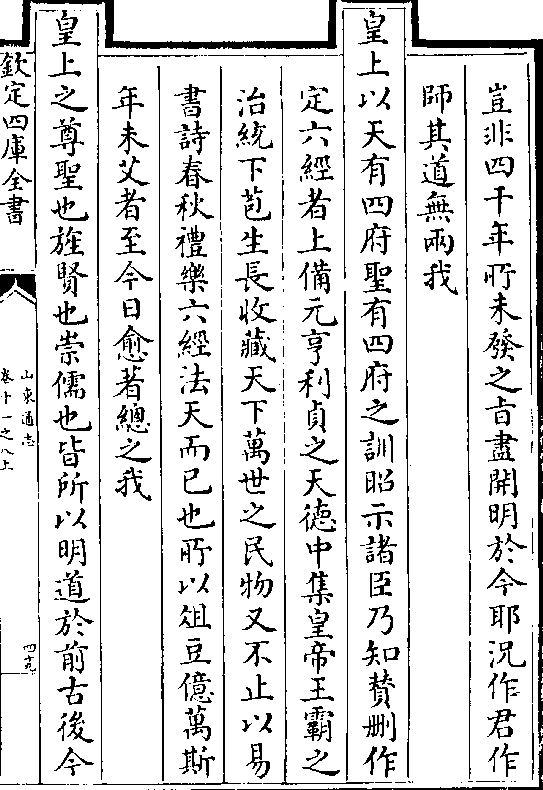 豈非四千年所未發之旨盡開明於今耶況作君作
師其道無兩我
皇上以天有四府聖有四府之訓昭示諸臣乃知贊刪作
定六經者上備元亨利貞之天德中集皇帝王霸之
治統下苞生長收藏天下萬世之民物又不止以易
書詩春秋禮樂六經法天而已也所以俎豆億萬斯
年未艾者至今日愈著總之我
皇上之尊聖也旌賢也崇儒也皆所以明道於前古後今
欽定四庫全書
山東通志
卷十一之八上